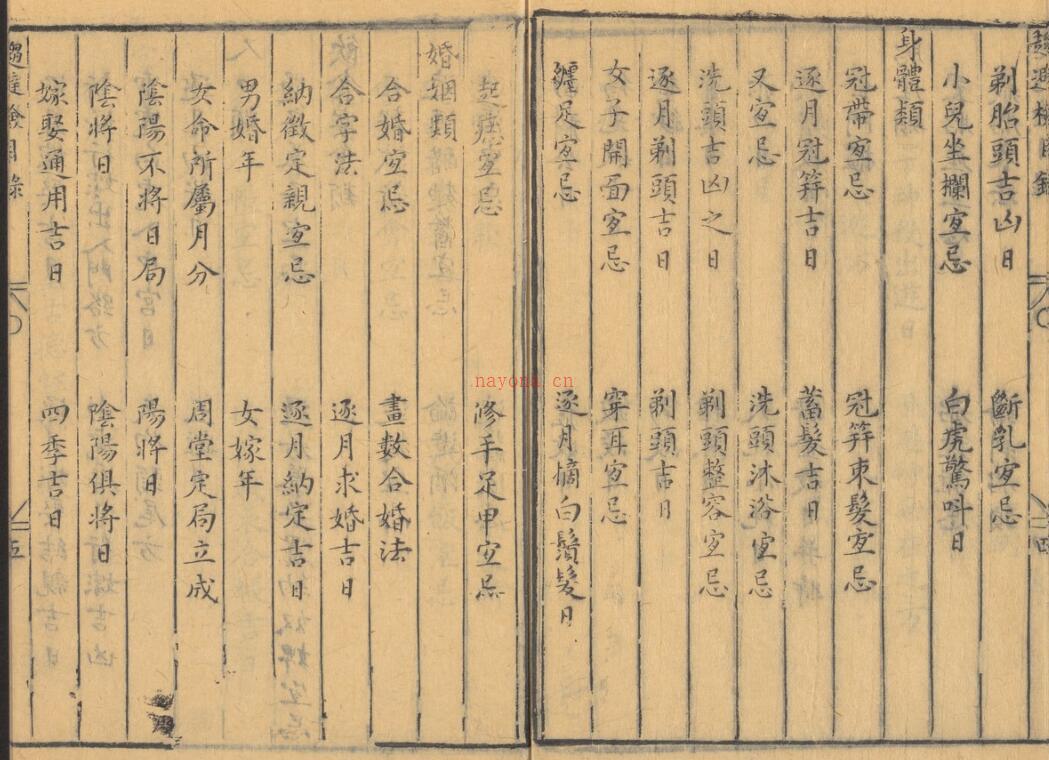 剃胎頭吉凶日　斷乳宜忌
小兒坐攔宜忌　白虎驚呌日
身體類
冠帶宜忌　冠笄束髮宜忌
逐月冠笄吉日　蓄髮吉日
又宜忌　洗頭沐浴宜忌
洗頭吉凶之日　剃頭整容宜忌
逐月剃頭吉日　剃頭吉日
女子開面宜忌　穿耳宜忌
纏足宜忌　逐月摘白鬚髮日
四
宜忌　修手足甲宜忌
婚姻類
合婚宜忌　畫數合婚法
合字法　逐月求婚吉日
納徵定親宜忌　逐月納定吉日
男婚年　女嫁年
女命所屬月分　周堂定局立成
陰陽不將日局　陽將日
陰將日　陰陽俱將日
嫁娶通用吉日　四季吉日
五
nayona.cn